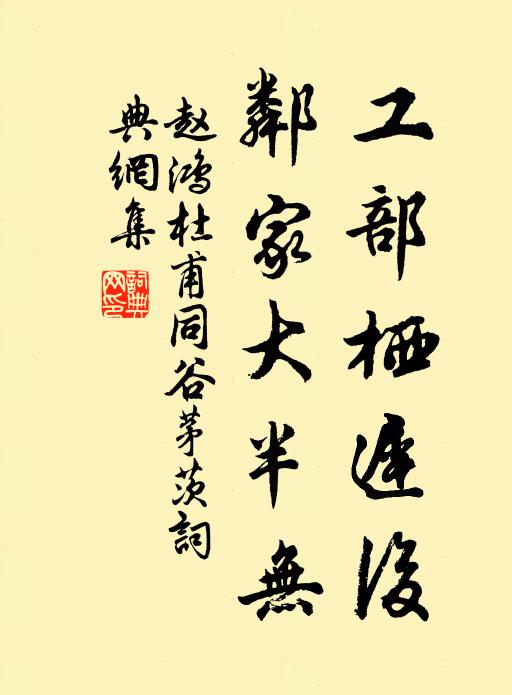 工部栖遲後
鄰家大半無
赵鴻杜甫同谷茅茨詞
典網集
詞典
网印